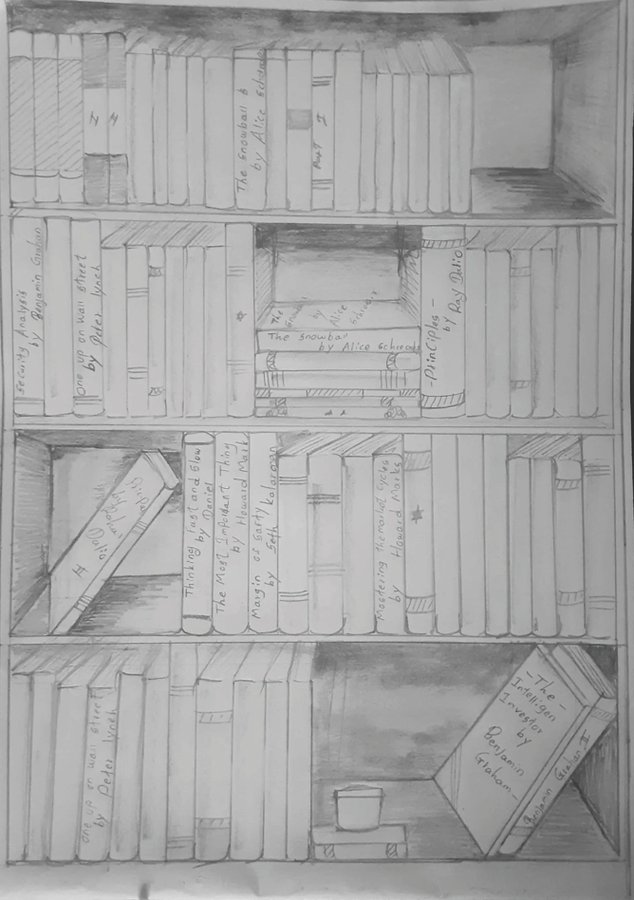 The Snowball
by Alice Schroeder
Part I
Security Analysis
by Benjamin Graham
one up on wall street
by Peter Lynch
The
Snowball
by
Alice
Schroeder
The Snowball
by Alice Schroeder
-Principles-
by Ray Dalio
Thinking Fast and Slow
by Daniel
The Most Important Thing
by Howard Mark
Margin of Safty
by Seth Kalarman
Mastering the market cycles
by Howard Marks
one up on wall street
by Peter Lynch
-The-
Intelligen
Investor
by
Benjamin
Graham-
Benjamin Graham II